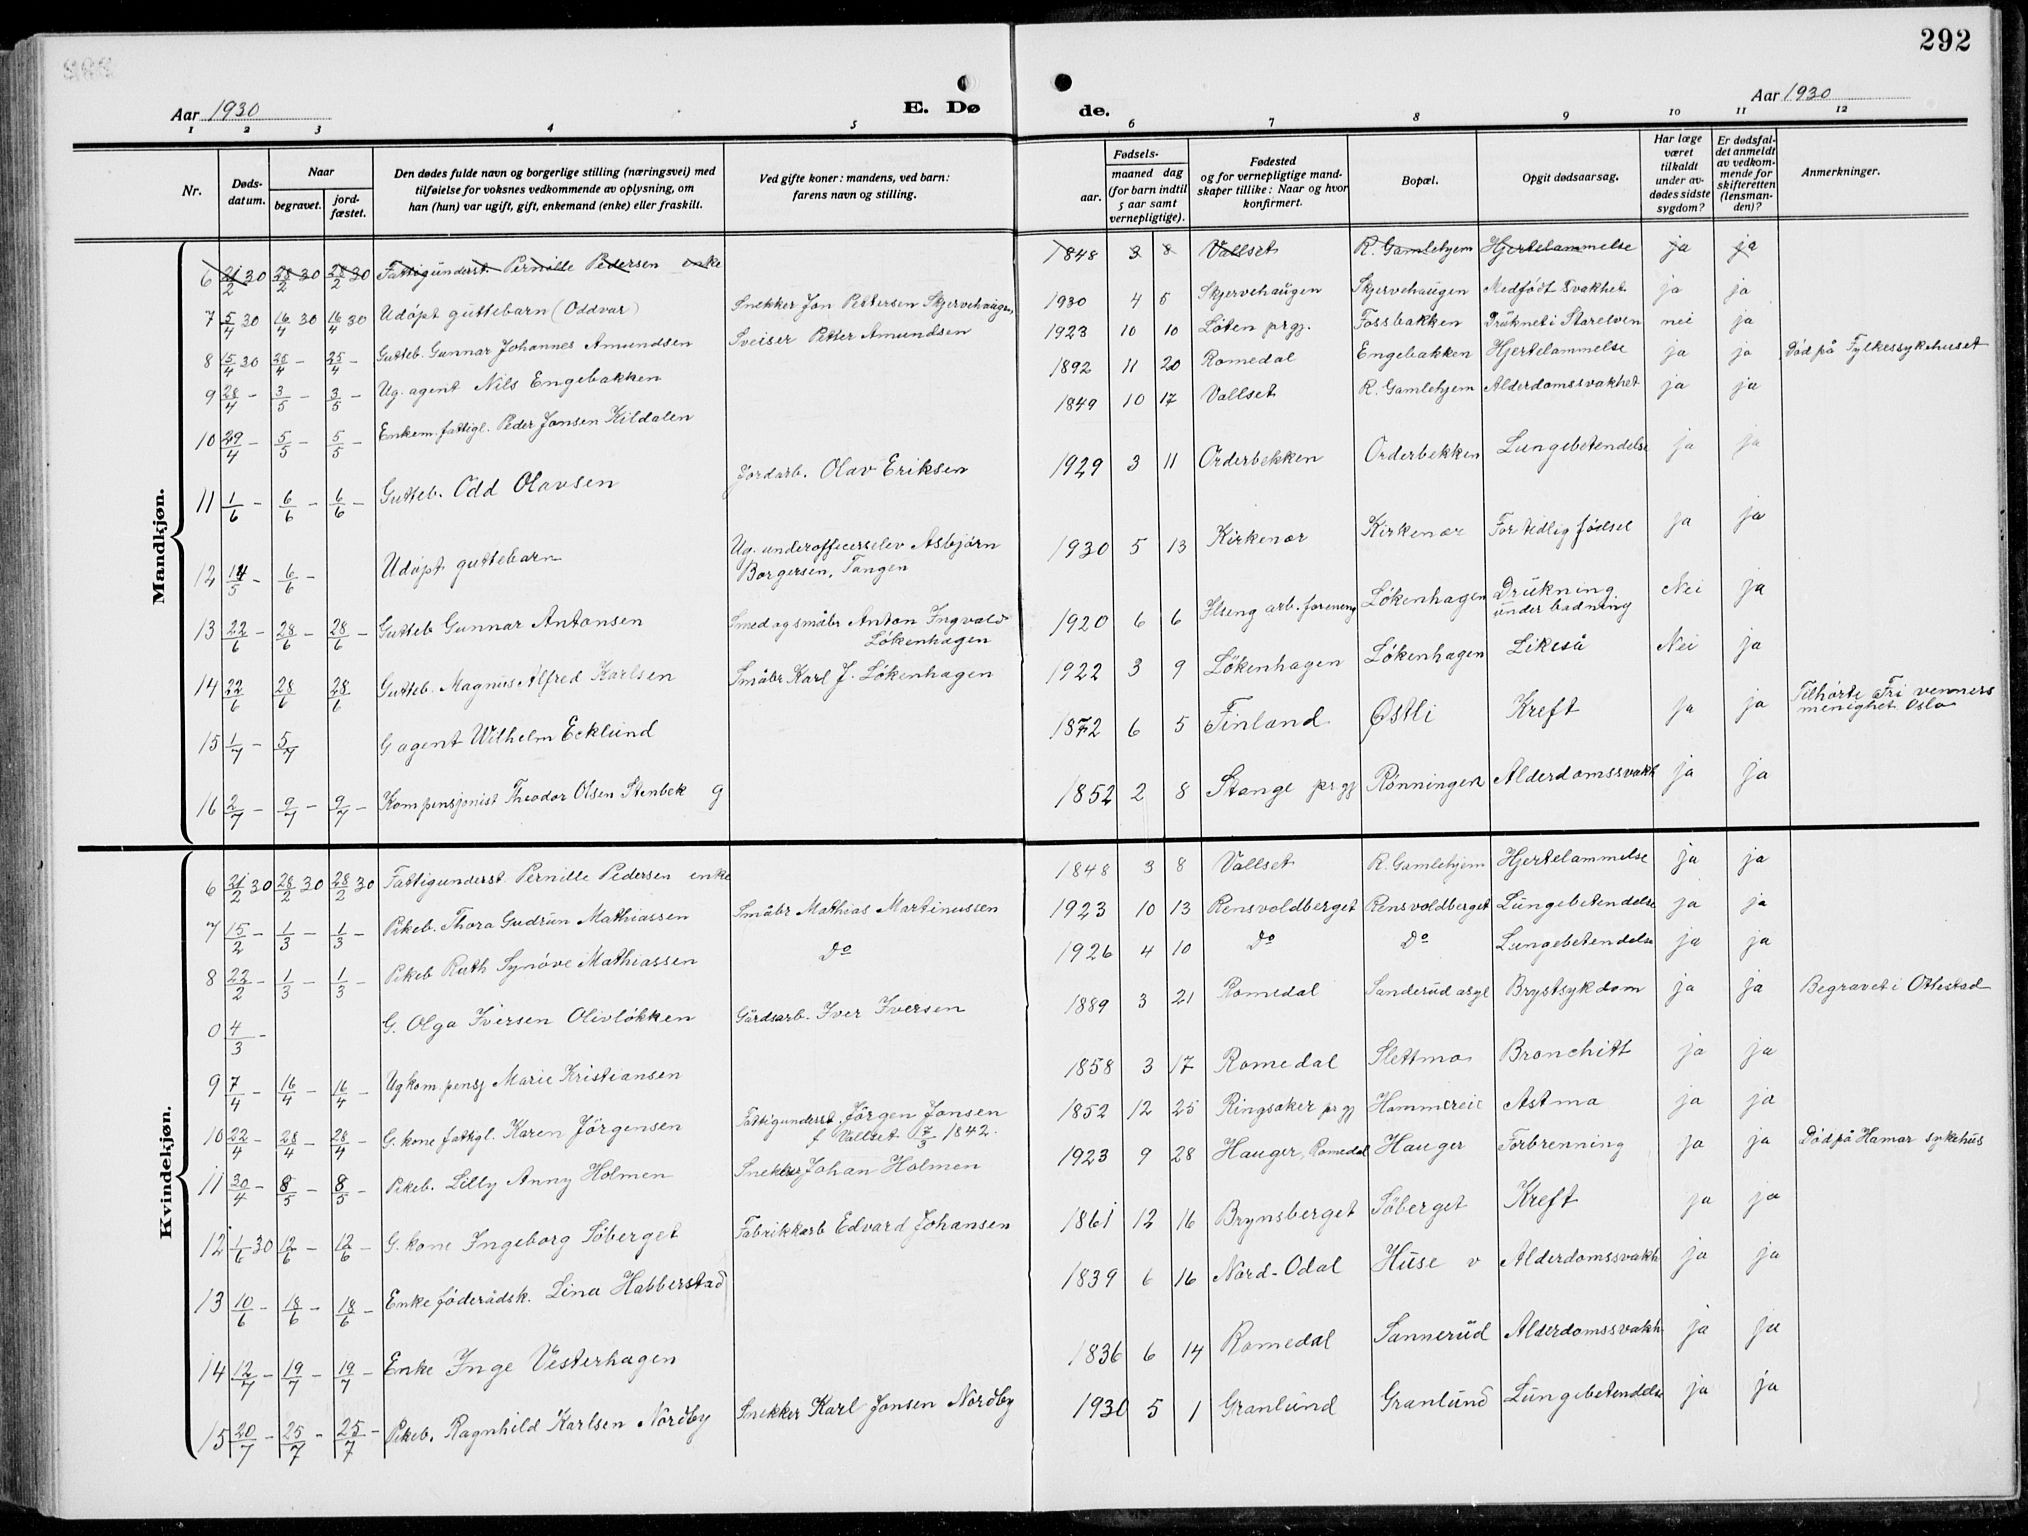 292
Aar 1930
E. Døde.
Aar 1930
1 2 3 4 5 6 7 8 9 10 11 12
Nr.
Døds-datum.
Naar
begravet.
jord-fæstet.
Den dødes fulde navn og borgerlige stilling (næringsvei) med
tilføielse for voksnes vedkommende av oplysning, om
han (hun) var ugift, gift, enkemand (enke) eller fraskilt.
Ved gifte koner: mandens, ved barn:
farens navn og stilling.
Fødsels-
aar. maaned dag
(for barn indtil
5 aar samt
vernepligtige).
Fødested
og for vernepligtige mand-
skaper tillike: Naar og hvor
konfirmert.
Bopæl.
Opgit dødsaarsag.
Har læge
været
tilkaldt
under av-
dødes sidste
sygdom?
Er dødsfal-
det anmeldt
av vedkom-
mende for
skifteretten
(lensman-
den)?
Anmerkninger.
Mandkjøn.
6 21/2 30 28/2 30 28/2 30 Fattigunderst. Pernille Pedersen enke 1848 3 8 Vallset R. Gamlehjem Hjertelammelse ja ja
7 5/4 30 16/4 30 16/4 30 Udøpt guttebarn (Oddvar) Snekker Jon Pettersen Skjervehaugen 1930 4 5 Skjervehaugen Skjervehaugen Medfødt svakhet ja ja
8 15/4 30 25/4 - 25/4 - Gutteb. Gunnar Johannes Amundsen Sveiser Petter Amundsen 1923 10 10 Löten prgj. Fossbakken Druknet i Starelven nei ja
9 28/4 - 3/5 - 3/5 - Ug. agent Nils Engebakken 1892 11 20 Romedal Engebakken Hjertelammelse ja ja Död på Fylkessykehuset
10 29/4 - 5/5 - 5/5 - Enkem. fattigl. Peder Jonsen Kildalen 1849 10 17 Vallset R. Gamlehjem Alderdomssvakhet ja ja
11 1/6 - 6/6 - 6/6 - Gutteb. Odd Olavsen Jordarb. Olav Eriksen 1929 3 11 Orderbekken Orderbekken Lungebetendelse ja ja
12 14/5 - 6/6 - Udøpt guttebarn Ug. underofficerselev Asbjörn
Borgersen, Tangen 1930 5 13 Kirkenær Kirkenær For tidlig fødsel ja ja
13 22/6 - 28/6 - 28/6 Gutteb Gunnar Antonsen Smed og småbr Anton Ingvald
Lökenhagen 1920 6 6 Ilseng arb. forening Lökenhagen Drukning
under badning Nei ja
14 22/6 28/6 28/6 Gutteb. Magnus Alfred Karlsen Småbr Karl J. Lökenhagen 1922 3 9 Lökenhagen Lökenhagen Likeså Nei ja
15 1/7 - 5/7 G agent Wilhelm Ecklund 1872 6 5 Finland Østli Kreft ja ja Tilhørte Fri venners
menighet Oslo
16 2/7 - 9/7 - 9/7 - Kom pensjonist Theodor Olsen Stenbek g 1852 2 8 Stange prgj Rønningen Alderdomssvakh ja ja
Kvindekjøn.
6 21/2 30 28/2 30 28/2 30 Fattigunderst. Pernille Pedersen enke 1848 3 8 Vallset R. Gamlehjem Hjertelammelse ja ja
7 15/2 - 1/3 - 1/3 - Pikeb. Thora Gudrun Mathiassen Småbr Mathias Martinussen 1923 10 13 Rensvoldberget Rensvoldberget Lungebetendelse ja ja
8 22/2 - 1/3 - 1/3 - Pikeb Ruth Synöve Mathiassen Do 1926 4 10 Do Do Lungebetendelse ja ja
0 4/3 - G. Olga Iversen Olivlökken Gårdsarb. Iver Iversen 1889 3 21 Romedal Sanderud asyl Brystsykdom ja ja Begravet i Ottestad
9 7/4 - 16/4 - 16/4 - Ug kom. pensj Marie Kristiansen 1858 3 17 Romedal Slettmo Bronchitt ja ja
10 22/4 - 28/4 - 28/4 - G. kone fattigl. Karen Jörgensen Fattigunderst. Jörgen Jonsen
f Vallset 7/9 1842. 1852 12 25 Ringsaker prgj Hammereie Astma ja ja
11 30/4 - 8/5 - 8/5 - Pikeb. Lilly Anny Holmen Snekker Johan Holmen 1923 9 28 Hauger, Romedal Hauger Forbrenning ja ja Död på Hamar sykehus
12 1/6 30 12/6 - 12/6 - G. kone Ingeborg Söberget Fabrikkarb Edvard Johansen 1861 12 16 Brynsberget Söberget Kreft ja ja
13 10/6 - 18/6 - 18/6 - Enke föderådsk. Lina Habberstad 1839 6 16 Nord-Odal Huse v Alderdomssvakh ja ja
14 12/7 - 19/7 - 19/7 - Enke Inge Vesterhagen 1836 6 14 Romedal Sannerud Alderdomssvakh ja ja
15 20/7 - 25/7 - 25/7 - Pikeb. Ragnhild Karlsen Nordby Snekker Karl Jonsen Nordby 1930 5 1 Granlund Granlund Lungebetendelse ja ja